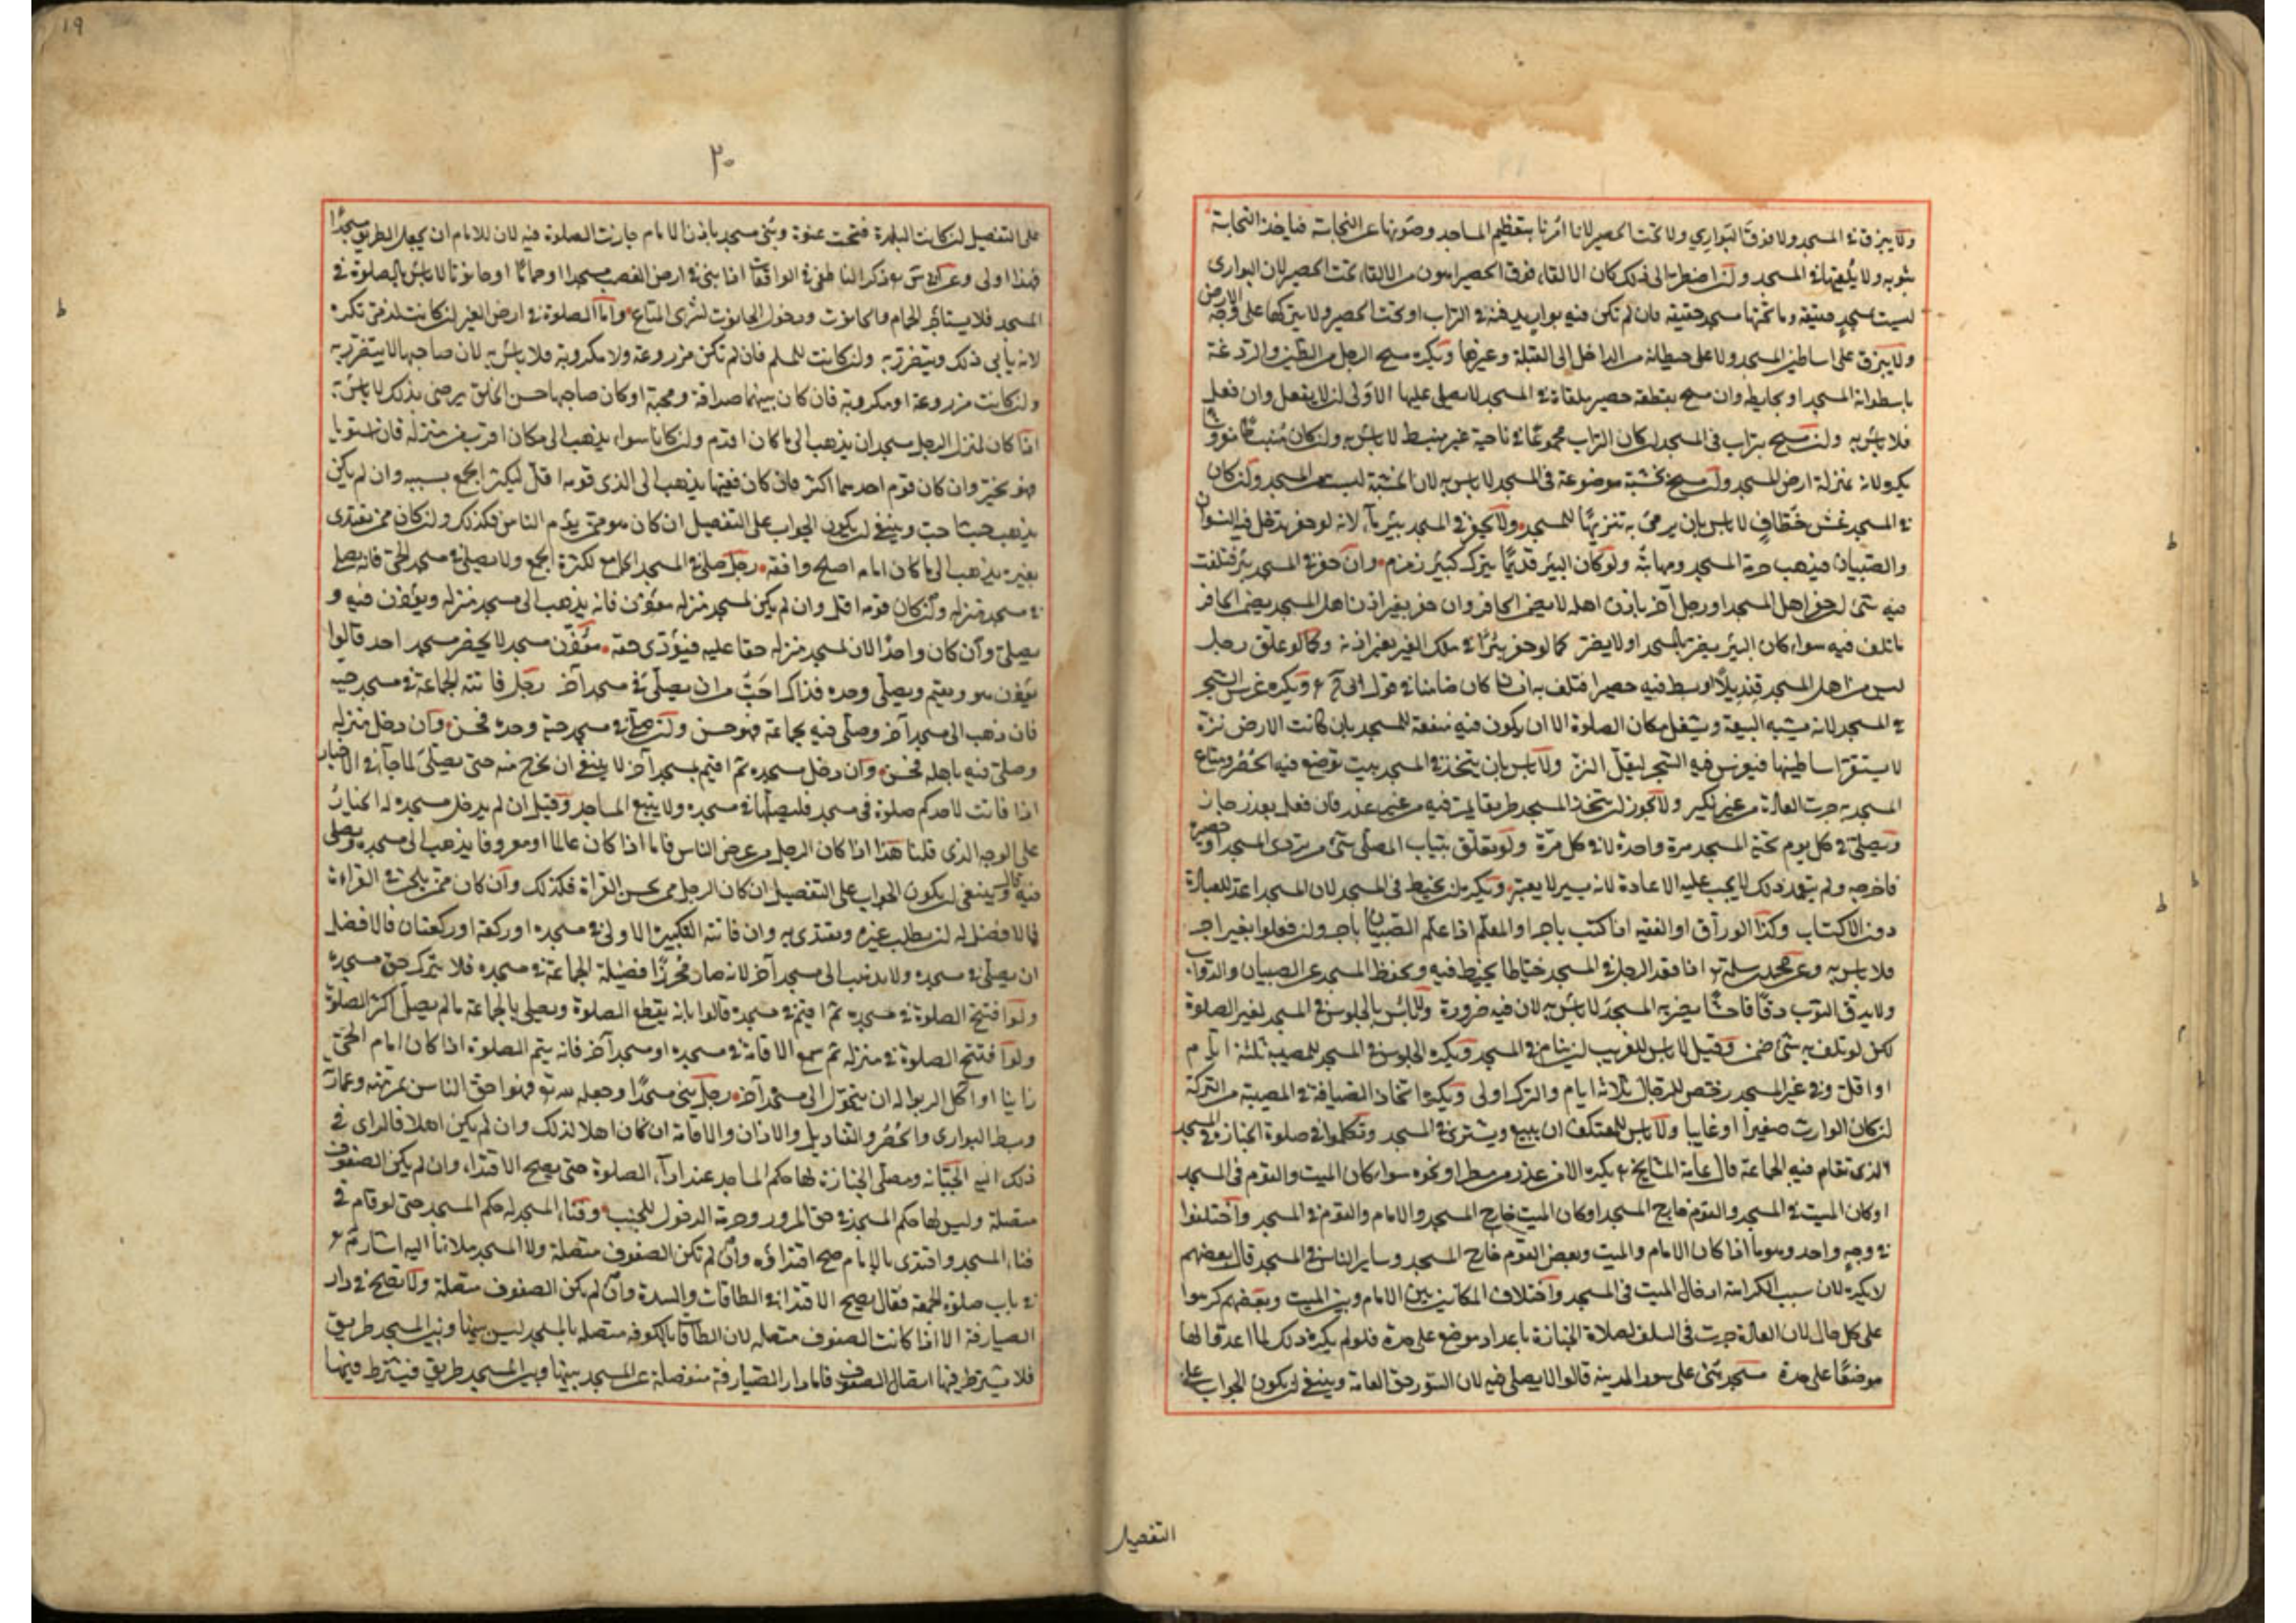 ولا يبزق في المسجد ولا فوق البواري ولا تحت الحصير لانا امرنا بتعظيم المساجد وصونها عن النجاسة فياخذ النجاسة
بثوبه ولا يلقيها في المسجد ولن اضطر الى ذلك كان الالقاء فوق الحصير اهون من الالقاء تحت الحصير لان البواري
ليست بمسجد حقيقة وما تحتها مسجد حقيقة فان لم تكن فيه بواري يدفنه في التراب او تحت الحصير ولا يتركها على وجه الارض
ولا يبزق على اساطين المسجد ولا على حيطانه من الداخل الى القبلة وغيرها ويكره مسح الرجل من الطين والردغة
باسطوانة المسجد او بحايطه وان مسح بقطعة حصير ملقاة في المسجد لا يصلى عليها الاولى لن لا يفعل وان فعل
فلا باس به ولن مسح بتراب في المسجد لن كان التراب مجموعا في ناحية غير منبسط لا باس به ولن كان منبسطا مفروشا
يكره لانه بمنزلة ارض المسجد ولن مسح بخشبة موضوعة في المسجد لا باس به لان الخشبة ليست من المسجد ولن كان
في المسجد عش خطاف لا باس بان يرمى به تنزيها للمسجد ولا يحفر في المسجد بئر ماء لانه لو حفر يدخل فيه النسوان
والصبيان فيذهب حرمة المسجد ومهابته ولو كان البئر قديما يترك كبئر زمزم وان حفر في المسجد بئر فتلفت
فيه شئ لن حفر اهل المسجد او رجل آخر باذن اهله لا يضمن الحافر وان حفر بغير اذن اهل المسجد يضمن الحافر
ما تلف فيه سواء كان البئر يضر بالمسجد او لا يضر كما لو حفر بئرا في ملك الغير بغير اذنه وكما لو علق رجل
ليس من اهل المسجد قنديلا او بسط فيه حصيرا فتلف به انسان كان ضامنا في قول ابي ح ويكره غرس الشجر
في المسجد لانه يشبه البيعة ويشغل مكان الصلوة الا ان يكون فيه منفعة للمسجد بان كانت الارض نزة
لا يستقر اساطينها فيغرس فيه الشجر ليقل النز ولا باس بان يتخذ في المسجد بيت توضع فيه الحصر ومتاع
المسجد به جرت العادة من غير نكير ولا يجوز لن يتخذ المسجد طريقا يمر فيه من غير عذر فان فعل بعذر جاز
ويصلى في كل يوم تحية المسجد مرة واحدة لا في كل مرة ولو تعلق بثياب المصلى شئ من بردي المسجد او حصيره
فاخرجه ولم يتعمد ذلك لا يجب عليه الاعادة لانه يسير لا يعتبر ويكره لن يخيط في المسجد لان المسجد اعد للعبادة
دون الاكتساب وكذا الوراق او الفقيه اذا كتب باجر او المعلم اذا علم الصبيان باجر ولن فعلوا بغير اجر
فلا باس به وعن محمد بن سلمة اذا قعد الرجل في المسجد خياطا يخيط فيه ويحفظ المسجد عن الصبيان والدواب
ولا يدق الثوب دقا فاحشا يضر به المسجد لا باس به لان فيه ضرورة ولا باس بالجلوس في المسجد لغير الصلوة
لكن لو تلف به شئ ضمن وقيل لا باس للغريب لن ينام في المسجد ويكره الجلوس في المسجد للمصيبة ثلثة ايام
او اقل وفي غير المسجد رخص للرجال ثلاثة ايام والترك اولى ويكره اتخاذ الضيافة في المصيبة من التركة
لن كان الوارث صغيرا او غايبا ولا باس للمعتكف ان يبيع ويشتري في المسجد وتكلموا في صلوة الجنازة في المسجد
الذي تقام فيه الجماعة قال عامة المشايخ يكره الا من عذر من مطر او نحوه سواء كان الميت والقوم في المسجد
او كان الميت في المسجد والقوم خارج المسجد او كان الميت خارج المسجد والامام والقوم في المسجد واختلفوا
في وجه واحد وهو ما اذا كان الامام والميت وبعض القوم خارج المسجد وساير الناس في المسجد قال بعضهم
لا يكره لان سبب الكراهة ادخال الميت في المسجد واختلاف المكانين بين الامام وبين الميت وبعضهم كرهوا
على كل حال لان العادة جرت في السلف لصلاة الجنازة باعداد موضع على حدة فلو لم يكره ذلك لما اعدوا لها
موضعا على حدة مسجد بني على سور المدينة قالوا لا يصلى فيه لان السور حق العامة وينبغي لن يكون الجواب على
التفصيل
١٩
٢٠
على التفصيل لن كانت البلدة فتحت عنوة وبني مسجد باذن الامام جازت الصلوة فيه لان للامام ان يجعل الطريق مسجدا
فهذا اولى وذكر الناطفي في الواقعات اذا بنى في ارض الغصب مسجدا او حماما او حانوتا لا باس بالصلوة في
المسجد فلا يستاجر الحمام والحانوت ودخول الحانوت لشرى المتاع واما الصلوة في ارض الغير لن كانت لذمي تكره
لانه يابى ذلك ويتضرر به ولن كانت للمسلم فان لم تكن مزروعة ولا مكروبة فلا باس به لان صاحبها لا يتضرر به
ولن كانت مزروعة او مكروبة فان كان بينهما صداقة ومحبة او كان صاحبها حسن الخلق يرضى بذلك لا باس به
اذا كان لمنزل الرجل مسجدان يذهب الى ما كان اقدم ولن كانا سواء يذهب الى مكان اقرب من منزله فان استويا
فهو مخير وان كان قوم احدهما اكثر فان كان فقيها يذهب الى الذي قومه اقل ليكثر الجمع بسببه وان لم يكن
يذهب حيث احب وينبغي لن يكون الجواب على التفصيل ان كان هو ممن يؤم الناس فكذلك ولن كان ممن يقتدى
بغيره يذهب الى ما كان امامه اصلح وافقه رجل صلى في المسجد الجامع لكثرة الجمع ولا يصلى في مسجد الحي فانه يصلى
في مسجد منزله ولن كان قومه اقل وان لم يكن لمسجد منزله مؤذن فانه يذهب الى مسجد منزله ويؤذن فيه و
يصلى وان كان واحدا لان لمسجد منزله حقا عليه فيؤدى حقه مؤذن مسجد لا يحضر مسجده احد قالوا
يؤذن هو ويقيم ويصلى وحده فذاك احب من ان يصلى في مسجد آخر رجل فاتته الجماعة في مسجد حيه
فان ذهب الى مسجد آخر وصلى فيه بجماعة فهو حسن ولن صلى في مسجد حيه وحده فحسن وان دخل منزله
وصلى فيه باهله فحسن وان دخل مسجده ثم اقيم بمسجد آخر لا ينبغي ان يخرج منه حتى يصلى لما جاء في الاخبار
اذا فاتت لاحدكم صلوة في مسجد فليصلها في مسجده ولا يتبع المساجد وقيل ان لم يدخل مسجده له الخيار
على الوجه الذي قلنا هذا اذا كان الرجل من عرض الناس فاما اذا كان عالما او معروفا يذهب الى مسجده ويصلى
فيه قال وينبغي لن يكون الجواب على التفصيل ان كان الرجل ممن يحسن القراة فكذلك وان كان ممن يلحن في القراءة
فالافضل له لن يطلب غيره ويقتدى به وان فاتته التكبيرة الاولى في مسجده او ركعة او ركعتان فالافضل
ان يصلى في مسجده ولا يذهب الى مسجد آخر لانه صار محرزا فضيلة الجماعة في مسجده فلا يترك حق مسجده
ولو افتتح الصلوة في مسجده ثم اقيم في مسجده قالوا بانه يقطع الصلوة ويصلى بالجماعة ما لم يصل اكثر الصلوة
ولو افتتح الصلوة في منزله ثم سمع الاقامة في مسجده او مسجد آخر فانه يتم الصلوة اذا كان امام الحي
زانيا او آكل الربوا له ان يتحول الى مسجد آخر رجل بنى مسجدا وجعله لله تع فهو احق الناس بمرمته وعمارته
وبسط البواري والحصر والقناديل والاذان والاقامة ان كان اهلا لذلك وان لم يكن اهلا فالراى في
ذلك اليه الجبانة ومصلى الجنازة لها حكم المساجد عند اداء الصلوة حتى يصح الاقتداء وان لم يكن الصفوف
متصلة وليس لها حكم المسجد في حق المرور وحرمة الدخول للجنب وفناء المسجد له حكم المسجد حتى لو قام في
فناء المسجد واقتدى بالامام صح اقتداؤه وان لم تكن الصفوف متصلة ولا المسجد ملانا اليه اشار م
في باب صلوة الجمعة فقال يصح الاقتداء في الطاقات والسدة وان لم يكن الصفوف متصلة ولا تصح في دار
الصيارفة الا اذا كانت الصفوف متصلة لان الطاقات بالكوفة متصلة بالمسجد ليس بينها وبين المسجد طريق
فلا يشترط فيها اتصال الصفوف فاما دار الصيارفة منفصلة عن المسجد بينها وبين المسجد طريق فيشترط فيها